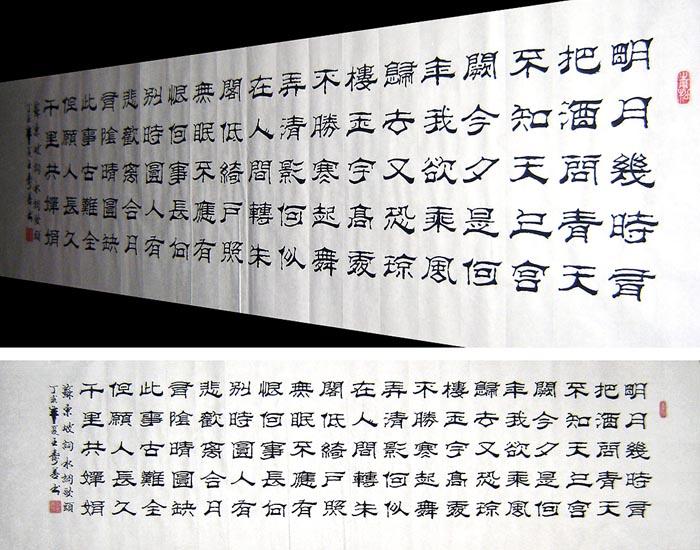 明月幾時有
把酒問青天
不知天上宮
闕今夕是何
年我欲乘風
歸去又恐琼
樓玉宇高處
不勝寒起舞
弄清影何似
在人間轉朱
閣低綺戶照
無眠不應有
恨何事長向
別時圓人有
悲歡离合月
有陰晴圓缺
此事古難全
但願人長久
千里共嬋娟
蘇東坡詞水調歌頭
明月幾時有
把酒問青天
不知天上宮
闕今夕是何
年我欲乘風
歸去又恐琼
樓玉宇高處
不勝寒起舞
弄清影何似
在人間轉朱
閣低綺戶照
無眠不應有
恨何事長向
別時圓人有
悲歡离合月
有陰晴圓缺
此事古難全
但願人長久
千里共嬋娟
蘇東坡詞水調歌頭